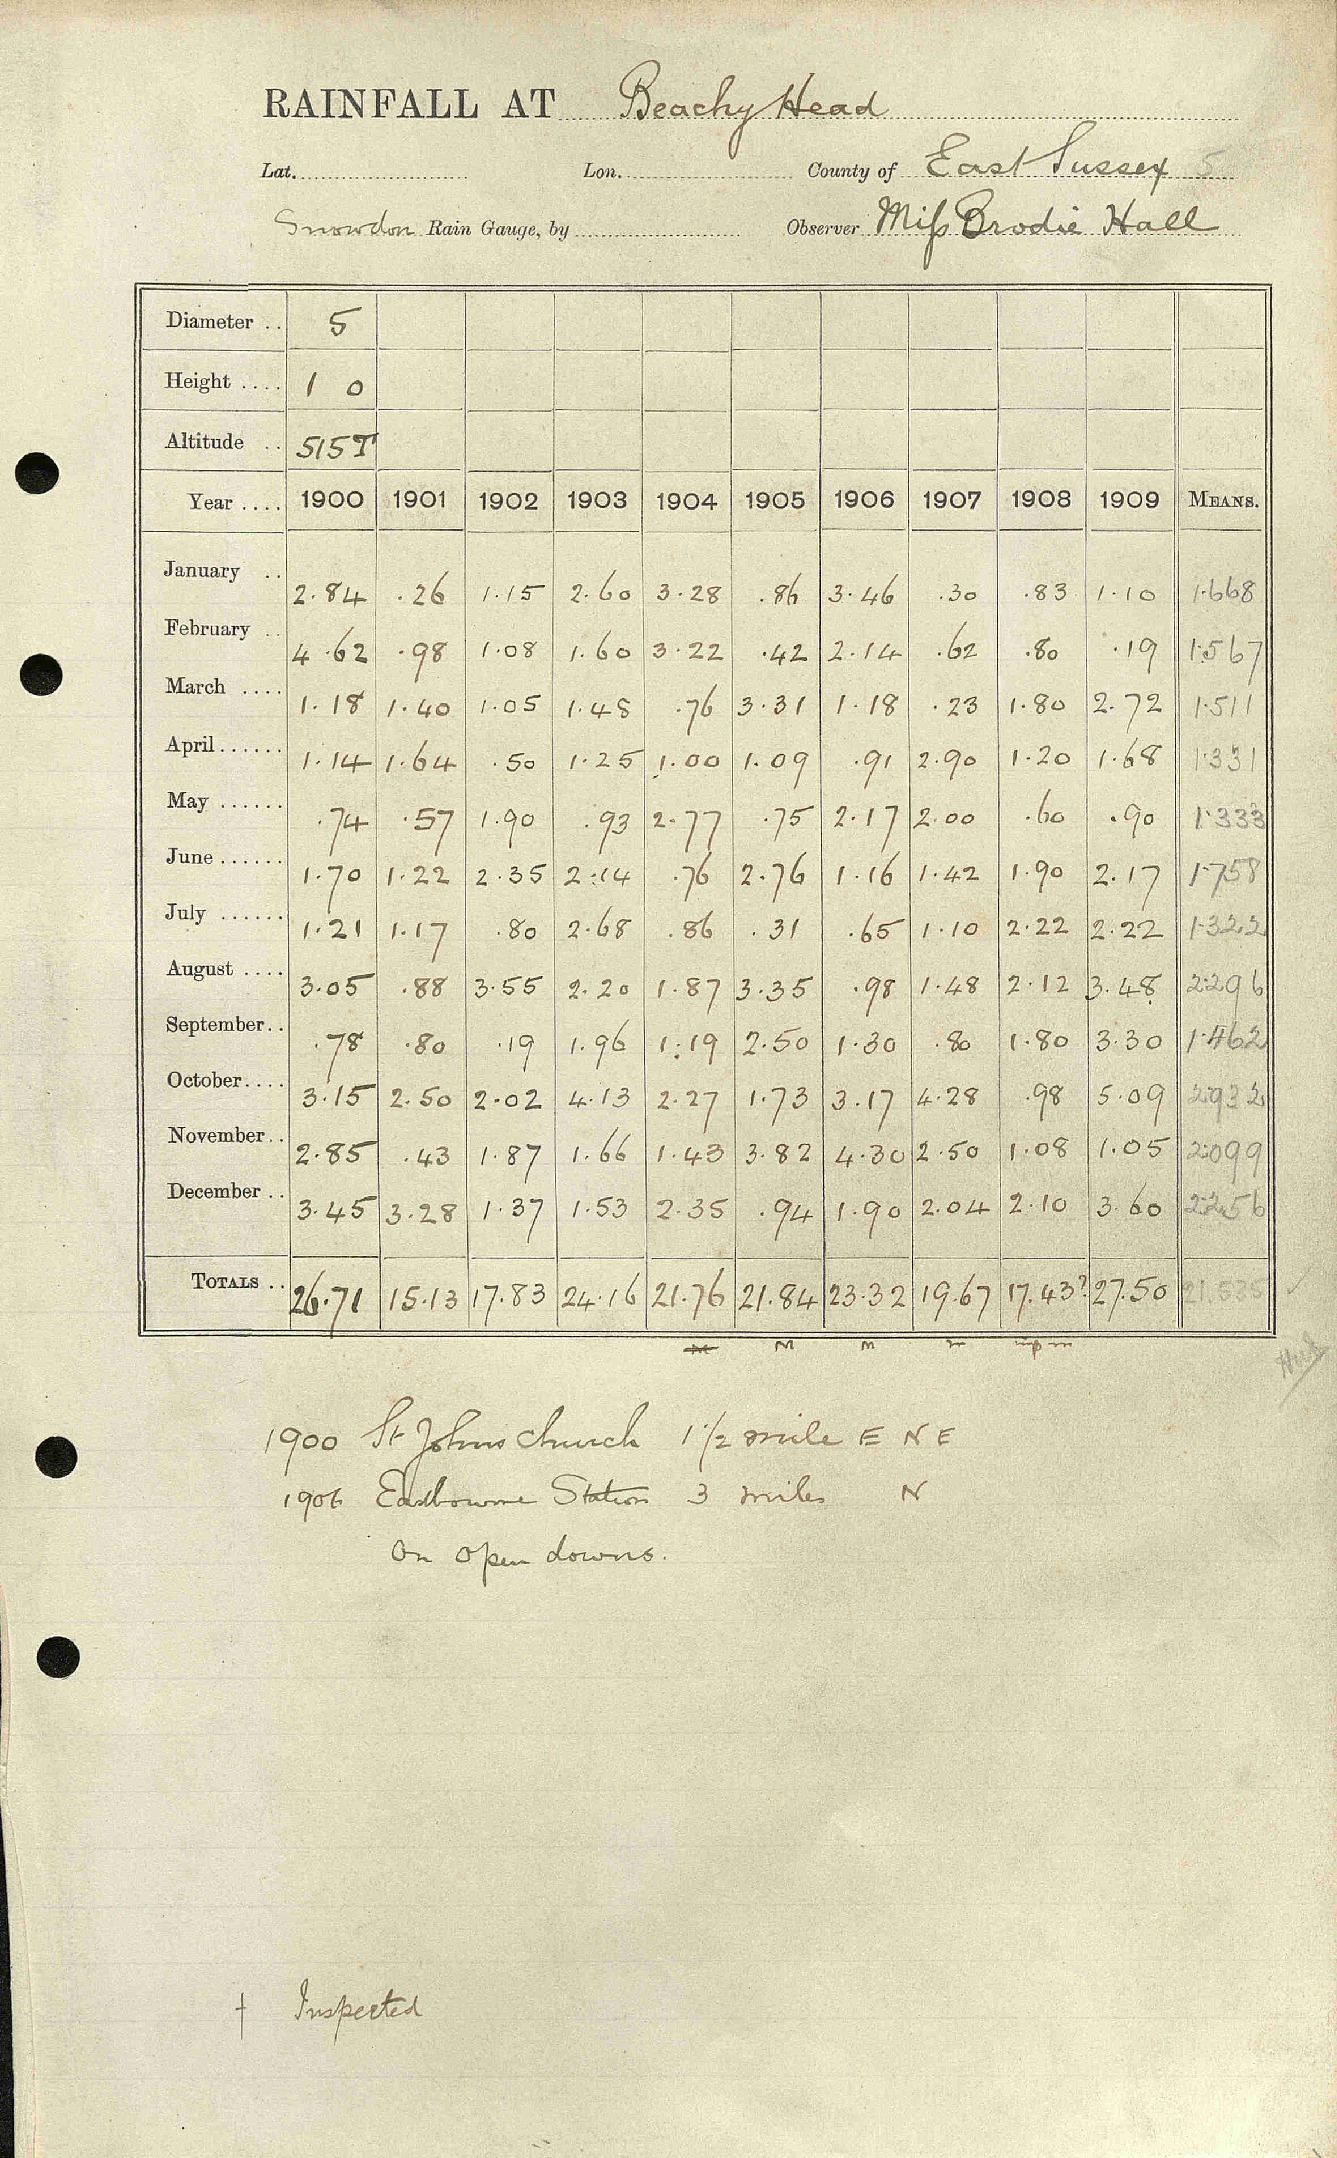 RAINFALL AT Beachy Head
Lat. Lon. County of East Sussex 5
Snowdon Rain Gauge, by Observer Miss Brodie Hall
Diameter .. 5
Height .... 1 0
Altitude .. 515T
Year .... 1900 1901 1902 1903 1904 1905 1906 1907 1908 1909 MEANS.
January .. 2.84 .26 1.15 2.60 3.28 .86 3.46 .30 .83 1.10 1.668
February .. 4.62 .98 1.08 1.60 3.22 .42 2.14 .62 .80 .19 1.567
March .... 1.18 1.40 1.05 1.48 .76 3.31 1.18 .23 1.80 2.72 1.511
April ...... 1.14 1.64 .50 1.25 1.00 1.09 .91 2.90 1.20 1.68 1.331
May ...... .74 .57 1.90 .93 2.77 .75 2.17 2.00 .60 .90 1.333
June ...... 1.70 1.22 2.35 2.14 .76 2.76 1.16 1.42 1.90 2.17 1.758
July ...... 1.21 1.17 .80 2.68 .86 .31 .65 1.10 2.22 2.22 1.322
August .... 3.05 .88 3.55 2.20 1.87 3.35 .98 1.48 2.12 3.48 2.296
September .. .78 .80 .19 1.96 1.19 2.50 1.30 .80 1.80 3.30 1.462
October .... 3.15 2.50 2.02 4.13 2.27 1.73 3.17 4.28 .98 5.09 2.932
November .. 2.85 .43 1.87 1.66 1.43 3.82 4.30 2.50 1.08 1.05 2.099
December .. 3.45 3.28 1.37 1.53 2.35 .94 1.90 2.04 2.10 3.60 2.256
TOTALS .. 26.71 15.13 17.83 24.16 21.76 21.84 23.32 19.67 17.43? 27.50 21.535
M M m
1900 St Johns Church 1 1/2 mile E N E
1906 Eastbourne Station 3 miles N
On open downs.
† Inspected